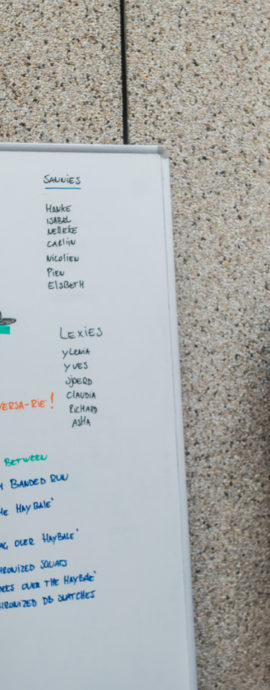 SANNIES
HANKE
ISABEL
NELLEKE
CARLIJN
NICOLIEN
PIEN
ELSBETH
LEXIES
YLENIA
YVES
SJOERD
CLAUDIA
RICHARD
ASHA
VERSA-RIE!
BETWEEN
BANDED RUN
HE HAY BALE'
OVER HAYBALE'
SQUATS
OVER THE HAYBALE'
HRONIZED DB SNATCHES